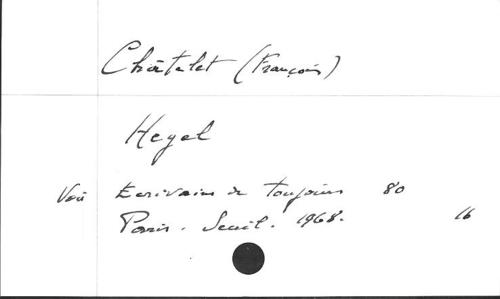 Châtelet (François)
Hegel
Voir Ecrivains de toujours 80
Paris. Seuil. 1968. 16